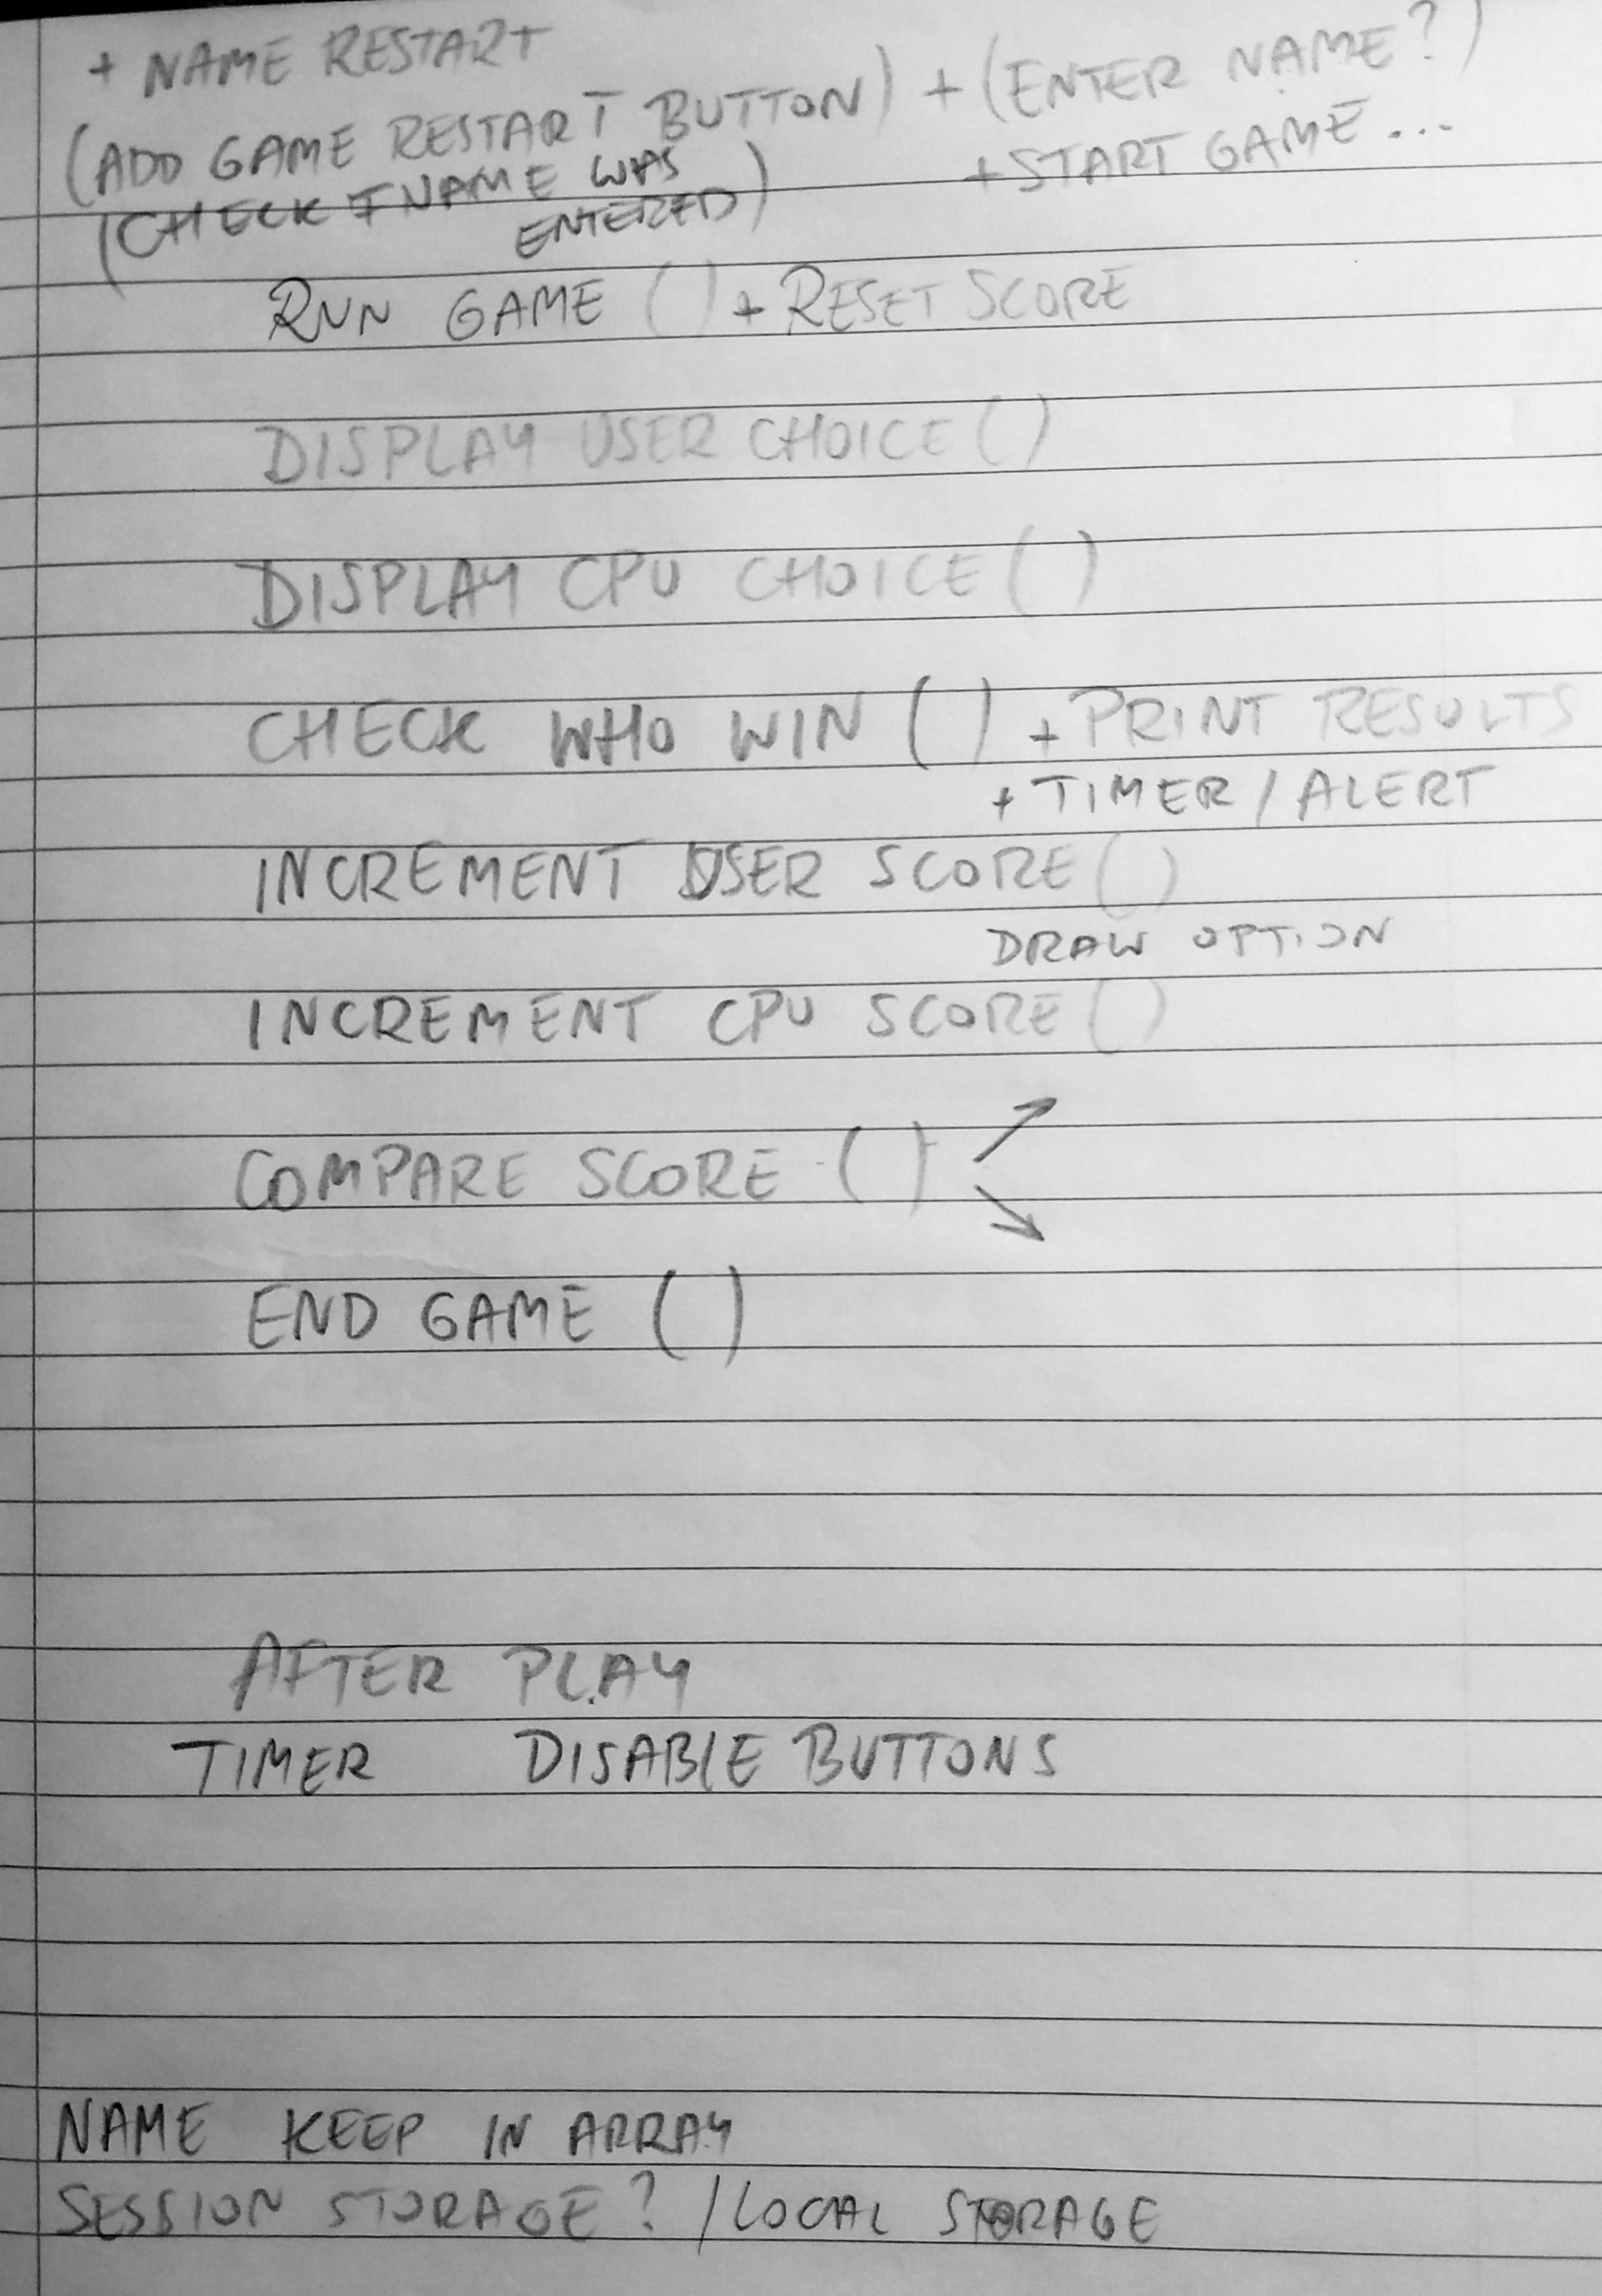 + NAME RESTART
(ADD GAME RESTART BUTTON) + (ENTER NAME?)
+ START GAME...
(CHECK IF NAME WAS
ENTERED)
RUN GAME () + RESET SCORE
DISPLAY USER CHOICE ()
DISPLAY CPU CHOICE ()
CHECK WHO WIN () + PRINT RESULTS
+ TIMER / ALERT
INCREMENT USER SCORE ()
DRAW OPTION
INCREMENT CPU SCORE ()
COMPARE SCORE ()
END GAME ()
AFTER PLAY
TIMER DISABLE BUTTONS
NAME KEEP IN ARRAY
SESSION STORAGE? / LOCAL STORAGE